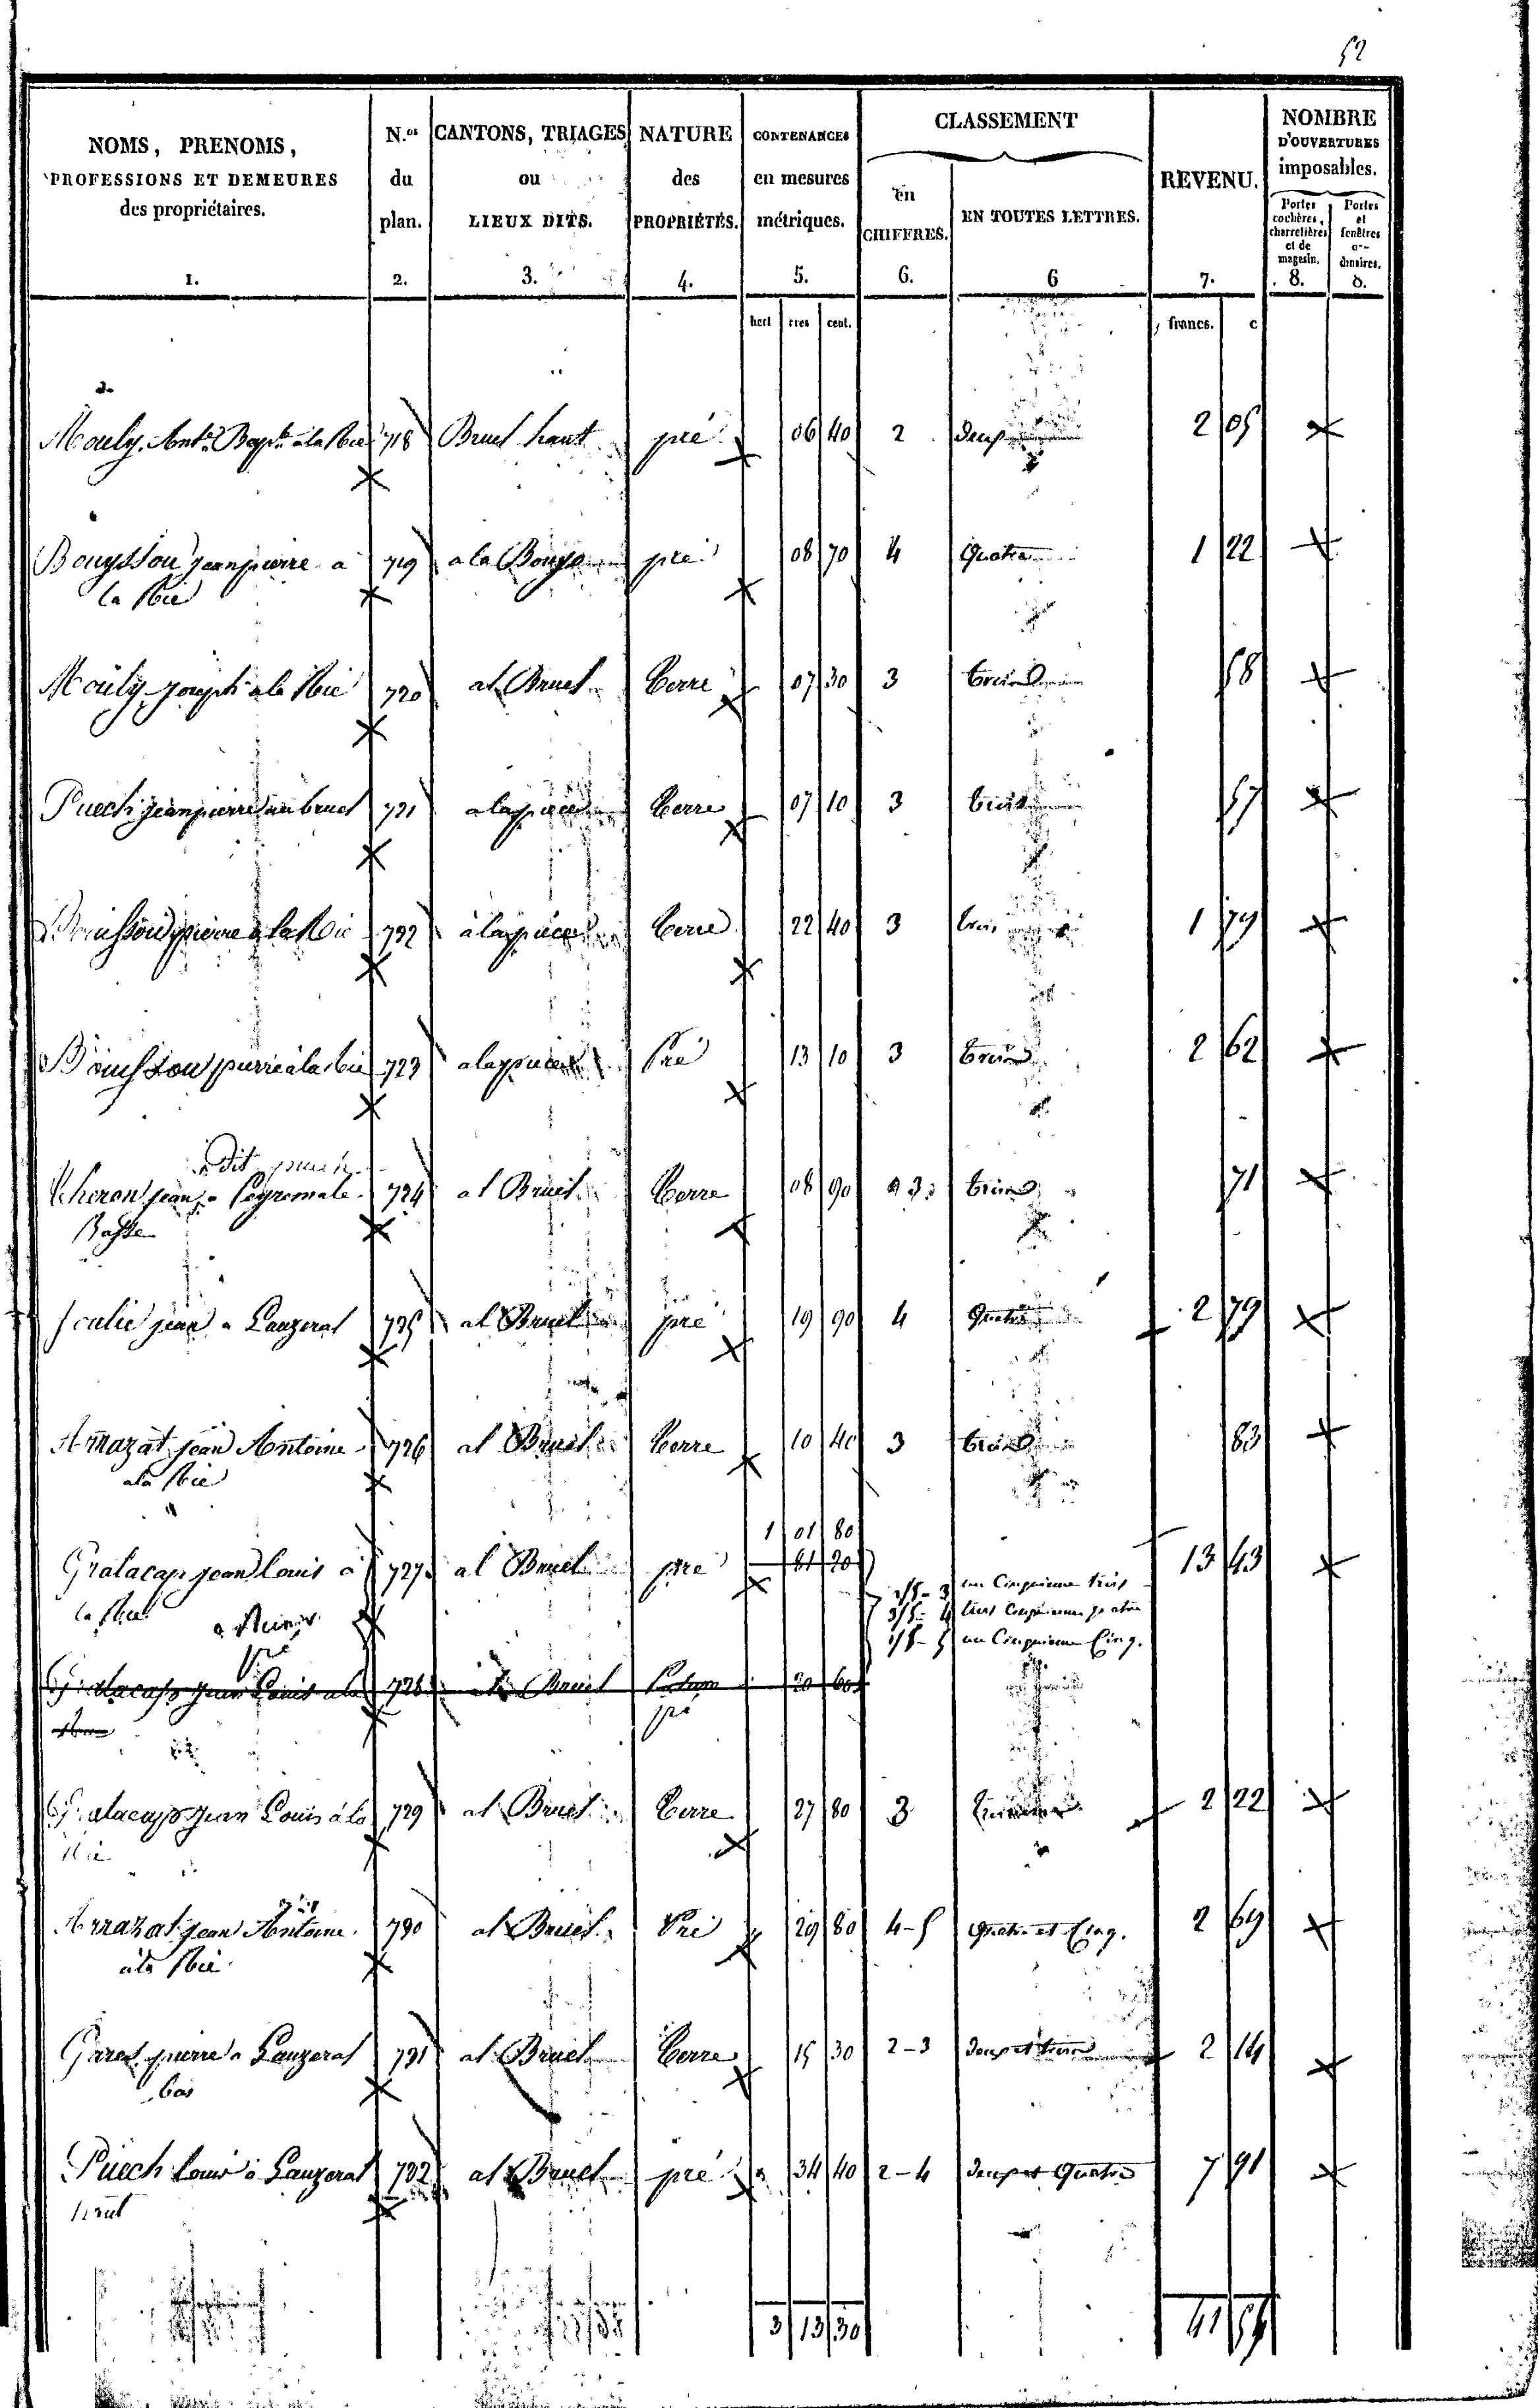 52
NOMS, PRENOMS, PROFESSIONS ET DEMEURES des propriétaires. 1.
N.os du plan. 2.
CANTONS, TRIAGES ou LIEUX DITS. 3.
NATURE des PROPRIÉTÉS. 4.
CONTENANCES en mesures métriques. 5.
CLASSEMENT
en CHIFFRES. 6.
EN TOUTES LETTRES. 6
REVENU. 7.
NOMBRE D'OUVERTURES imposables.
Portes cochères, charretières et de magasin. 8.
Portes et fenêtres o-- dinaires. 8.
hect ares cent. francs. c
Mouly Ant.e Bapt.e à la 718 Bruel haut pré 06 40 2 deux 2 05
Bouysson jean pierre a 719 a la pré 08 70 4 Quatre 1 22
la
Mouly joseph a la 720 al Bruel terre 07 30 3 trois 58
Puech jean pierre au bruel 721 a la piece terre 07 10 3 trois 57
pierre a la 722 à la piece terre 22 40 3 trois 1 79
Bouisson pierre à la 723 a la piece Pré 13 10 3 trois 2 62
Dit puech
Theron jean a Peyremale 724 al Bruel terre 08 90 3 trois 71
Basse
jean a Lauzeral 725 al Bruel pré 19 90 4 Quatre 2 79
Arrazat jean Antoine 726 al Bruel terre 10 40 3 trois 83
a la
1 01 80
Gralacap jean Louis a 727 al Bruel pré 81 20 13 43
la
1/5 - 3 un Cinquieme trois
3/5 - 4 trois Cinquieme quatre
1/5 - 5 un Cinquieme Cinq.
pré
Gralacap jean Louis a la 728 Bruel 20 60
pré
Gralacap jean Louis à la 729 al Bruel terre 27 80 3 2 22
Arrazat jean Antoine 730 al Bruel Pré 29 80 4-5 Quatre et Cinq. 2 69
à la
pierre a Lauzeral 731 al Bruel terre 15 30 2-3 deux et trois 2 14
bas
Puech Louis à Lauzeral 732 al Bruel pré 34 40 2-4 deux et Quatre 7 91
haut
3 13 30 41 54